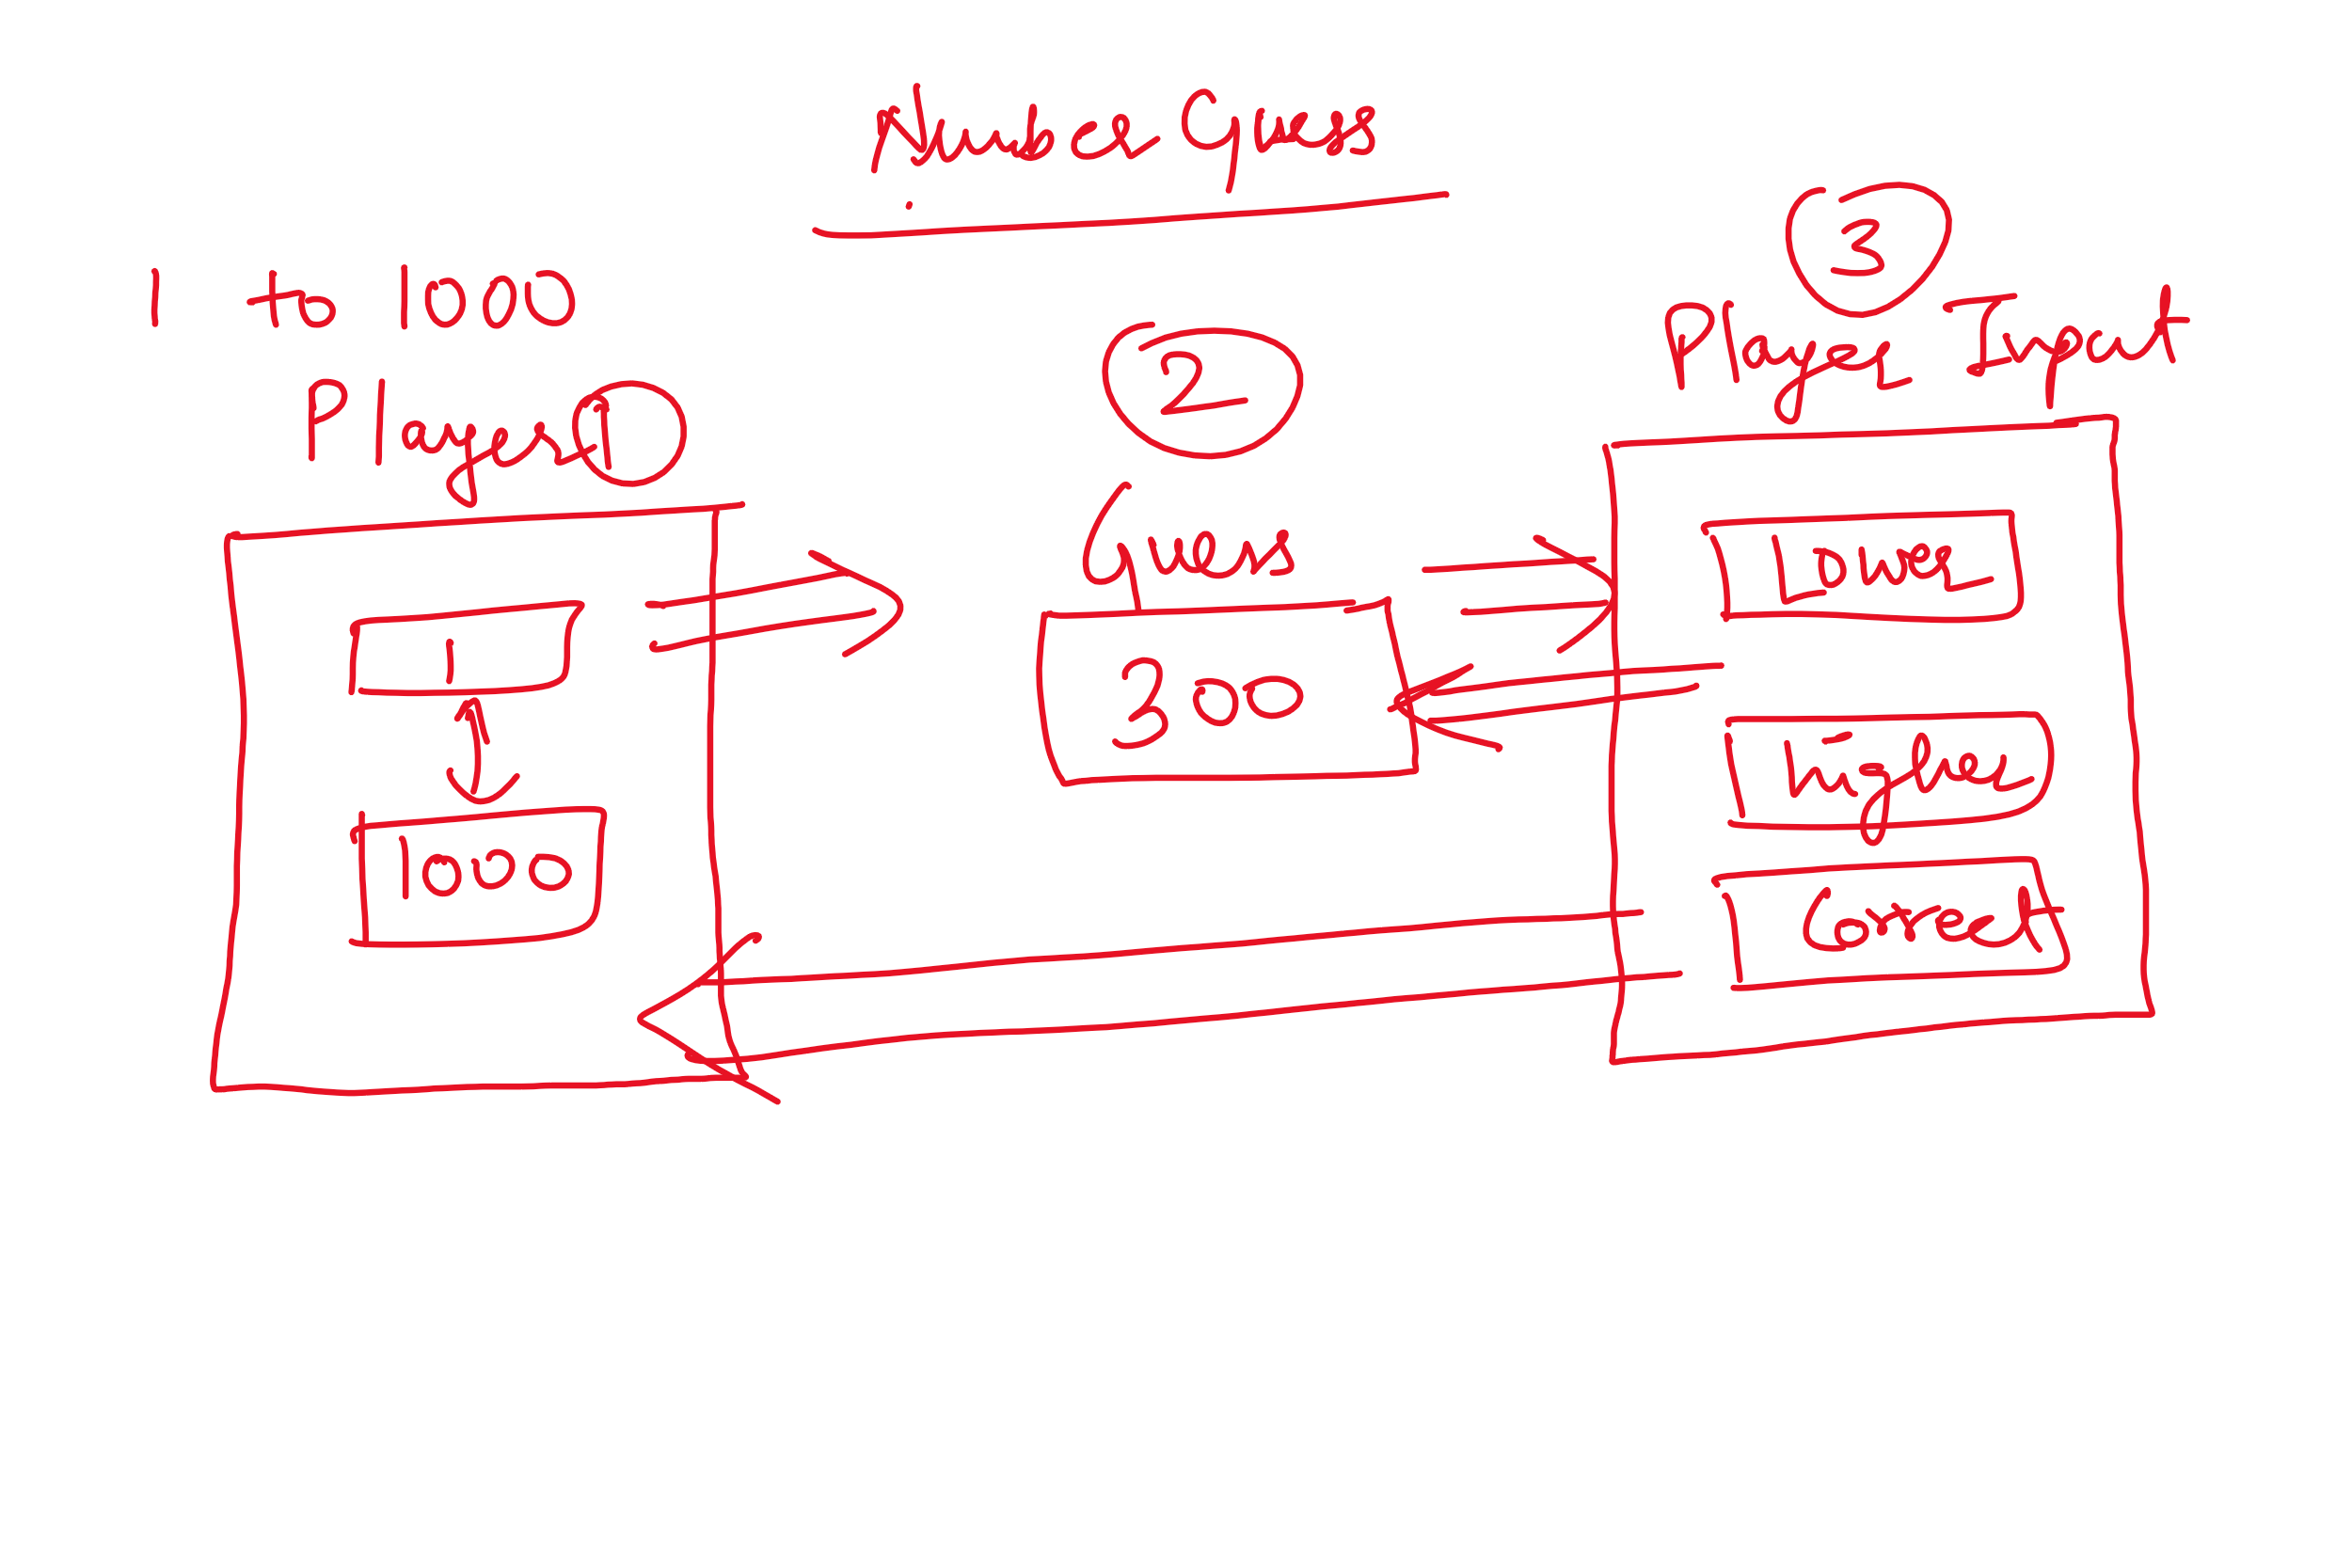 Number Guess
1 to 1000
Player 1
1
1000
2
Guess
300
3
Player Input
Lower
Higher
Correct